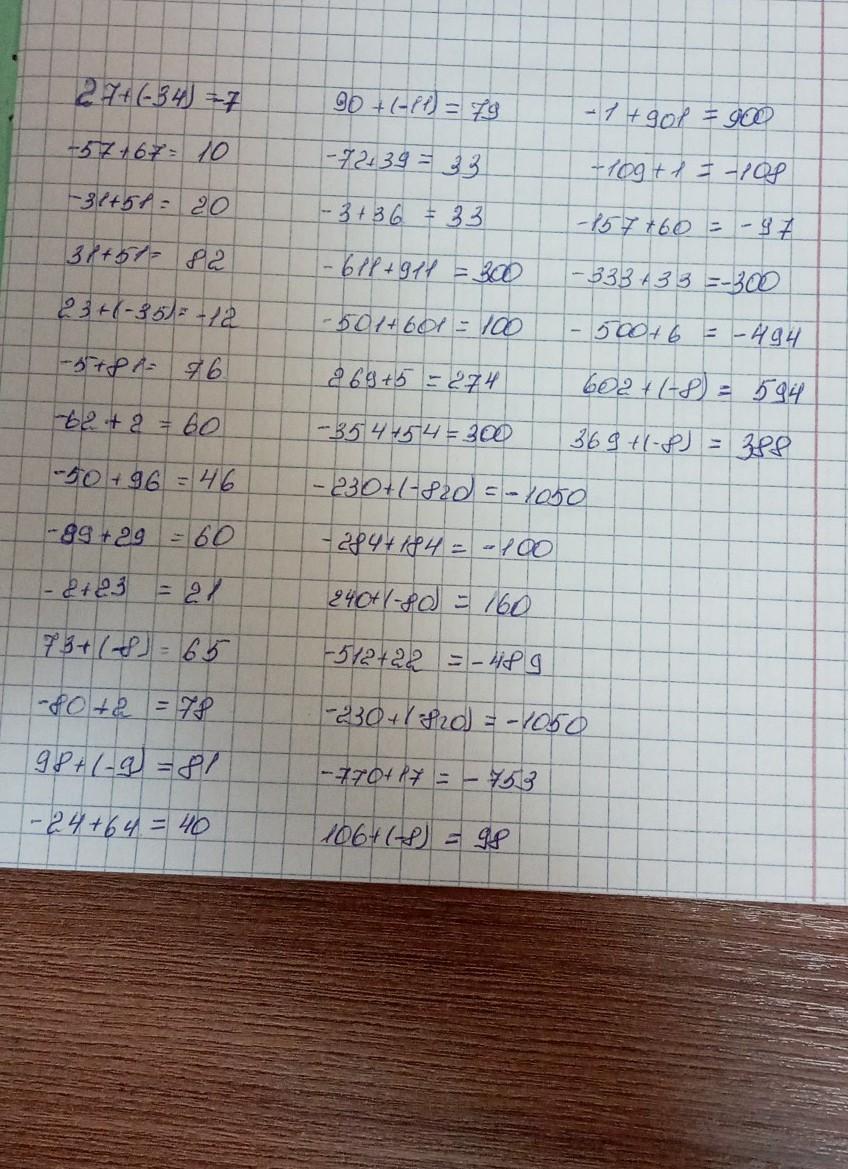 27+(-34) =-7
-57+67= 10
-31+51= 20
31+51= 82
23+(-35)= -12
-5+81= 76
-62+2 = 60
-50+96 = 46
-89+29 = 60
-2+23 = 21
73+(-8) = 65
-80+2 = 78
98+(-9) = 81
-24+64 = 40
90+(-11) = 79
-72+39 = 33
-3+36 = 33
-611+911 = 300
-501+601 = 100
269+5 = 274
-354+54 = 300
-230+(-820) = -1050
-284+184 = -100
240+(-80) = 160
-512+22 = -489
-230+(-820) = -1050
-770+17 = -753
106+(-8) = 98
-1+901 = 900
-109+1 = -108
-157+60 = -97
-333+33 =-300
-500+6 = -494
602+(-8) = 594
369+(-8) = 388